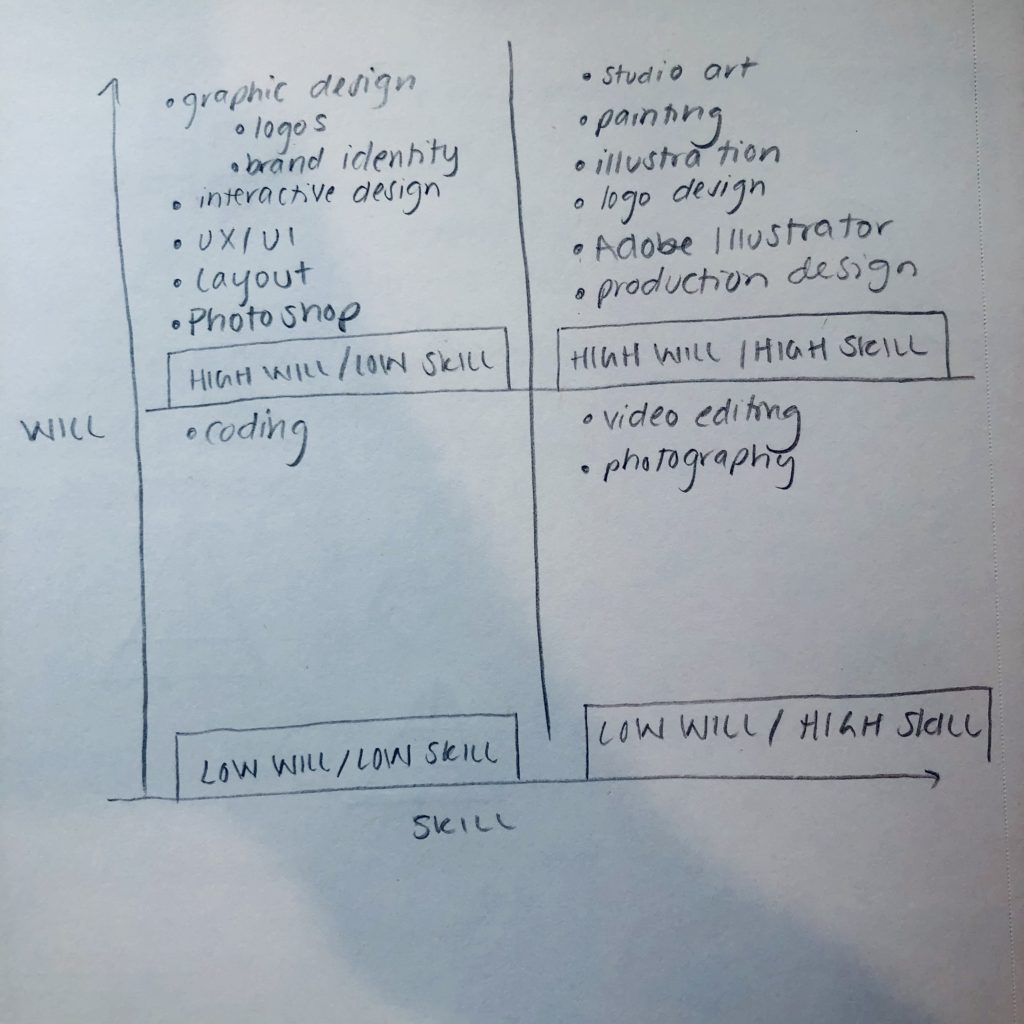 • graphic design
• logos
• brand identity
• interactive design
• UX/UI
• Layout
• Photoshop
HIGH WILL / LOW SKILL
• studio art
• painting
• illustration
• logo design
• Adobe Illustrator
• production design
HIGH WILL / HIGH SKILL
WILL
• coding
LOW WILL / LOW SKILL
• video editing
• photography
LOW WILL / HIGH SKILL
SKILL